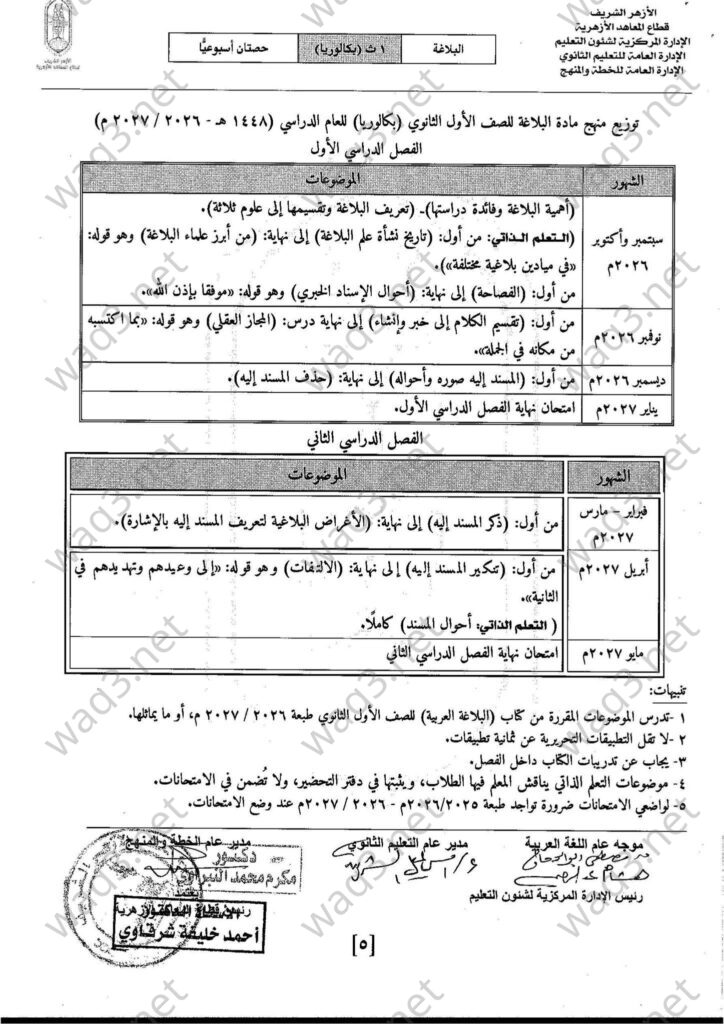 الأزهر الشريف
قطاع المعاهد الأزهرية
الإدارة المركزية لشئون التعليم
الإدارة العامة للتعليم الثانوي
الإدارة العامة للخطة والمنهج
البلاغة | ١ ث (بكالوريا) | حصتان أسبوعيًّا
الأزهر الشريف
قطاع المعاهد الأزهرية
توزيع منهج مادة البلاغة للصف الأول الثانوي (بكالوريا) للعام الدراسي (١٤٤٨ هـ - ٢٠٢٦ / ٢٠٢٧ م)
الفصل الدراسي الأول
الشهور | الموضوعات
سبتمبر وأكتوبر ٢٠٢٦م
(أهمية البلاغة وفائدة دراستها)ـ (تعريف البلاغة وتقسيمها إلى علوم ثلاثة).
(التعلم الذاتي: من أول: (تاريخ نشأة علم البلاغة) إلى نهاية: (من أبرز علماء البلاغة) وهو قوله:
«في ميادين بلاغية مختلفة»).
من أول: (الفصاحة) إلى نهاية: (أحوال الإسناد الخبري) وهو قوله: «موفقا بإذن الله».
نوفمبر ٢٠٢٦م
من أول: (تقسيم الكلام إلى خبر وإنشاء) إلى نهاية درس: (المجاز العقلي) وهو قوله: «بما اكتسبه
من مكانه في الجملة».
ديسمبر ٢٠٢٦م | من أول: (المسند إليه صوره وأحواله) إلى نهاية: (حذف المسند إليه).
يناير ٢٠٢٧م | امتحان نهاية الفصل الدراسي الأول.
الفصل الدراسي الثاني
الشهور | الموضوعات
فبراير – مارس ٢٠٢٧م
من أول: (ذكر المسند إليه) إلى نهاية: (الأغراض البلاغية لتعريف المسند إليه بالإشارة).
أبريل ٢٠٢٧م
من أول: (تنكير المسند إليه) إلى نهاية: (الالتفات) وهو قوله: «إلى وعيدهم وتهديدهم في
الثانية».
( التعلم الذاتي: أحوال المسند) كاملًا.
مايو ٢٠٢٧م | امتحان نهاية الفصل الدراسي الثاني
تنبيهات:
١ -تدرس الموضوعات المقررة من كتاب (البلاغة العربية) للصف الأول الثانوي طبعة ٢٠٢٦ / ٢٠٢٧ م، أو ما يماثلها.
٢ -لا تقل التطبيقات التحريرية عن ثمانية تطبيقات.
٣- يجاب عن تدريبات الكتاب داخل الفصل.
٤- موضوعات التعلم الذاتي يناقش المعلم فيها الطلاب، ويثبتها في دفتر التحضير، ولا تُضمن في الامتحانات.
٥- لواضعي الامتحانات ضرورة تواجد طبعة ٢٠٢٦/٢٠٢٥م - ٢٠٢٦ / ٢٠٢٧م عند وضع الامتحانات.
موجه عام اللغة العربية
مدير عام التعليم الثانوي
مدير عام الخطة والمنهج
دكتور
مكرم محمد النبراوي
رئيس الإدارة المركزية لشئون التعليم
يعتمد
رئيس قطاع المعاهد الأزهرية
أحمد خليفة شرقاوي
[٥]
waq3.net